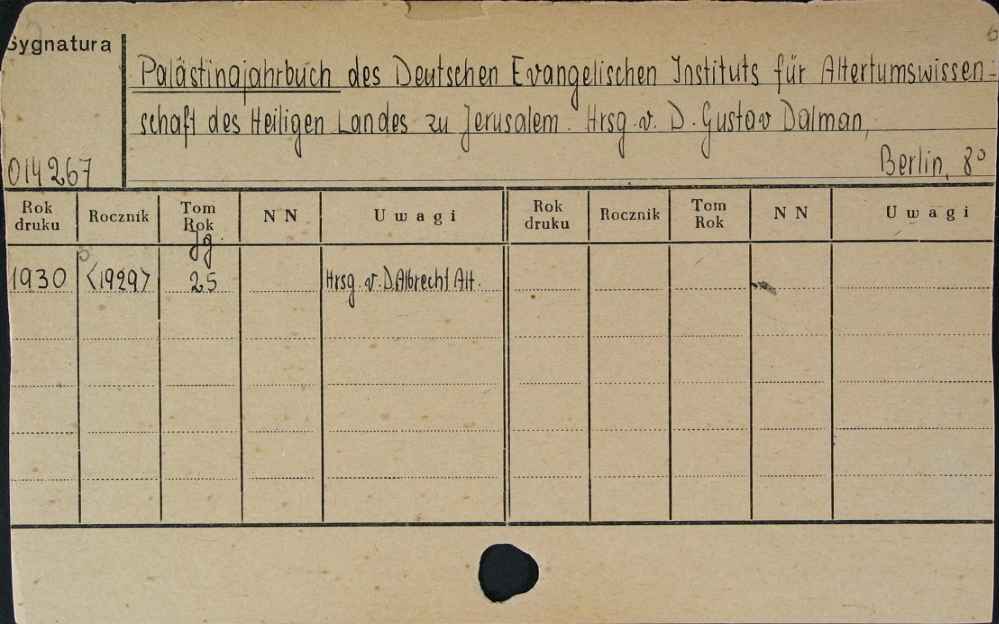 Sygnatura
Palästinajahrbuch des Deutschen Evangelischen Instituts für Altertumswissen=
schaft des Heiligen Landes zu Jerusalem. Hrsg. v. D. Gustav Dalman,
014267
Berlin, 8°
Rok druku Rocznik Tom Rok NN Uwagi Rok druku Rocznik Tom Rok NN Uwagi
Jg.
1930 <1929> 25 Hrsg. v. D. Albrecht Alt.